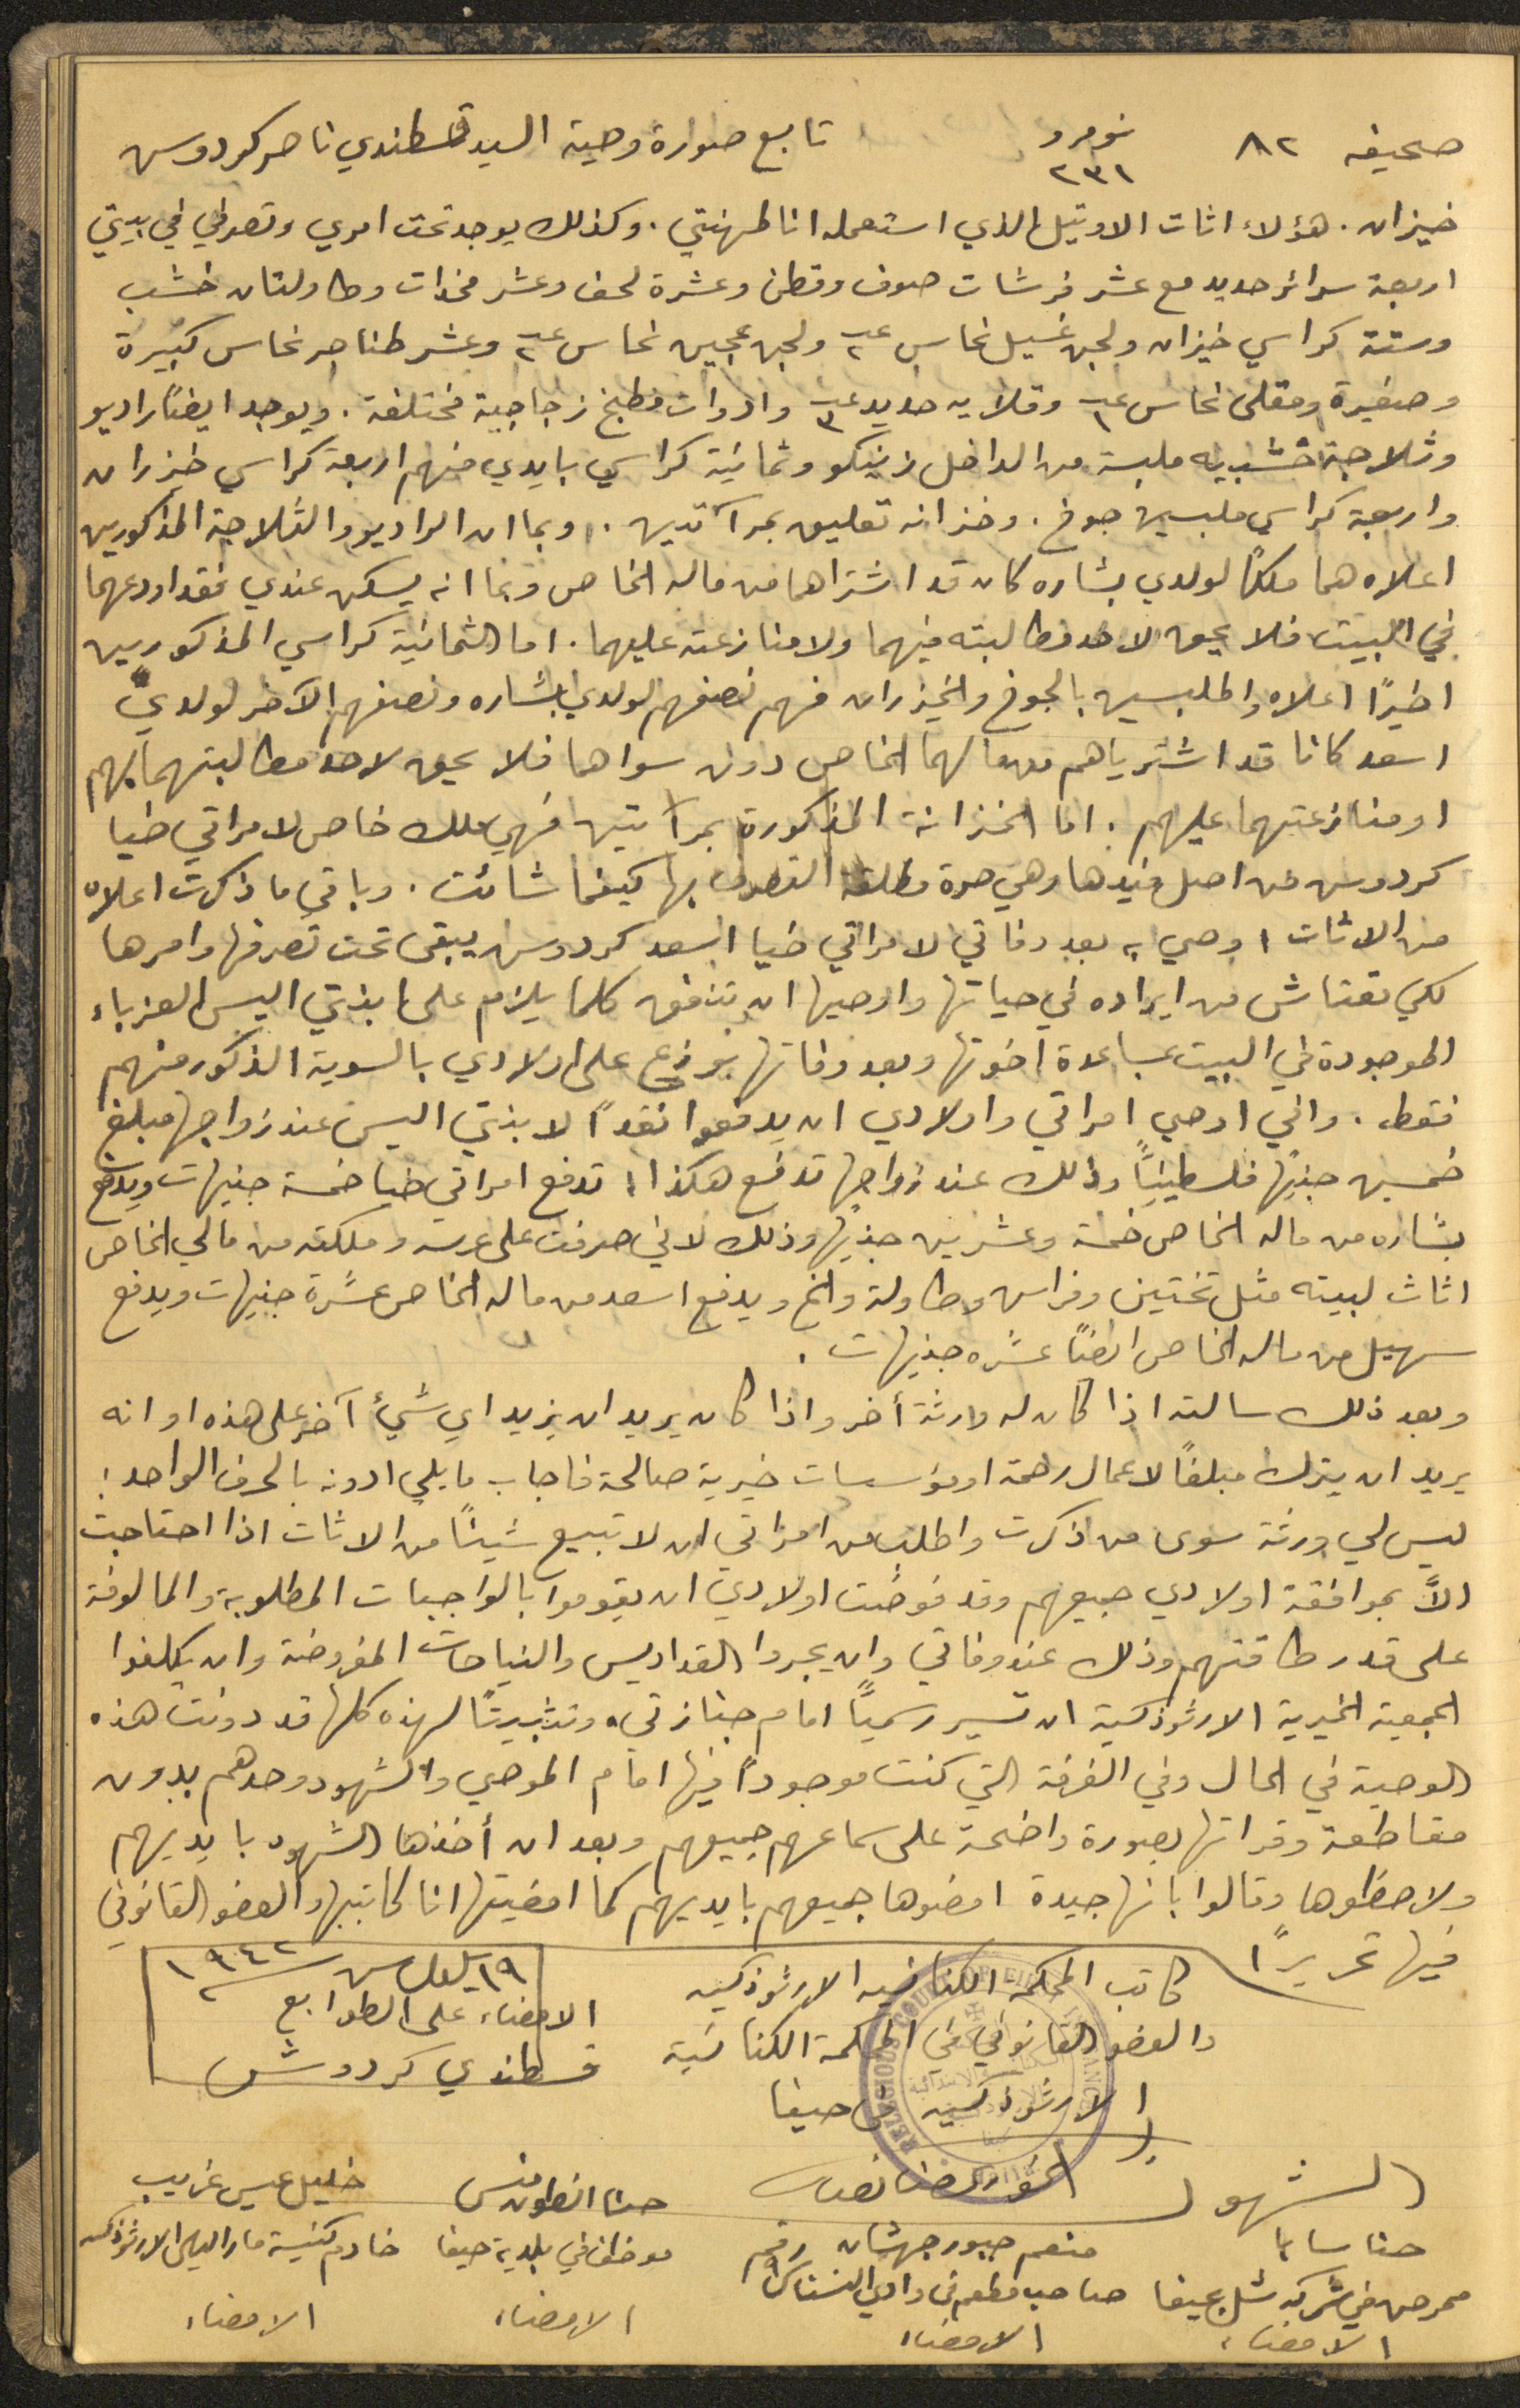 صحيفه ٨٢ نومرو ٢٣١ تابع صورة وصية السيد قسطندي ناصر كردوس
خيزران. هؤلاء اثاث الاوتيل الذي استعمله انا لمهنتي. وكذلك يوجد تحت امري وتصرفي في بيتي
اربعة سرائر حديد مع عشر فرشات صوف وقطن وعشرة لحف وعشر مخدات وطاولتان خشب
وستة كراسي خيزران ولجن غسيل نحاس عدد ٢ ولجن عجين نحاس عدد ٢ وعشر طناجر نحاس كبيرة
وصغيرة ومقلى نحاس عدد ١ وقلايه حديد عدد ٣ وادوات مطبخ زجاجية مختلفة. ويوجد ايضًا راديو
وثلاجة خشبيه ملبسة من الداخل زينكو وثمانية كراسي بايدي منهم اربعة كراسي خزران
واربعة كراسي ملبسين جوخ. وخزانه تعليق بمرآتين. وبما ان الراديو والثلاجة المذكورين
اعلاه هما ملكًا لولدي بشاره كان قد اشتراهما من ماله الخاص وبما انه يسكن عندي فقد اودعهما
في البيت فلا يحق لاحد مطالبته فيهما ولا منازعته عليهما. اما الثمانية كراسي المذكورين
اخيرًا اعلاه والملبسين بالجوخ والخيزران فهم نصفهم لولدي بشاره ونصفهم الآخر لولدي
اسعد كانا قد اشترياهم من مالهما الخاص دون سواهما فلا يحق لاحد مطالبتهما بهم
او منازعتهما عليهم. اما الخزانة المذكورة بمرآتين فهي ملك خاص لامراتي ضيا
كردوس من اصل فيدها وهي حرة مطلقة التصرف بها كيفما شائت. وباقي ما ذكرت اعلاه
من الاثاث اوصي به بعد وفاتي لامراتي ضيا اسعد كردوس يبقى تحت تصرفها وامرها
لكي تعتاش من ايراده في حياتها واوصيها ان تنفق كلما يلزم على ابنتي اليس العزباء
الموجودة في البيت بمساعدة اخوتها وبعد وفاتها يوزع على اولادي بالسوية الذكور منهم
فقط. واني اوصي امراتي واولادي ان يدفعوا نقدًا لابنتي اليس عند زواجها مبلغ
خمسين جنيهًا فلسطينيًا وذلك عند زواجها تدفع هكذا: تدفع امراتي ضيا خمسة جنيهات ويدفع
بشاره من ماله الخاص خمسة وعشرين جنيهًا وذلك لاني صرفت على عرسه وملكته من مالي الخاص
اثاث لبيته مثل تختين وفراش وطاولة والخ ويدفع اسعد من ماله الخاص عشرة جنيهات ويدفع
سهيل من ماله الخاص ايضًا عشره جنيهات.
وبعد ذلك سالته اذا كان له وارثة أخر واذا كان يريد ان يزيد اي شيء آخر على هذه او انه
يريد ان يترك مبلغًا لاعمال رحمة او مؤسسات خيرية صالحة فاجاب ما يلي ادونه بالحرف الواحد:
ليس لي ورثة سوى من ذكرت واطلب من امراتي ان لا تبيع شيئًا من الاثاث اذا احتاجت
الاّ بموافقة اولادي جميعهم وقد فوضت اولادي ان يقوموا بالواجبات المطلوبة والمالوفة
على قدر طاقتهم وذلك عند وفاتي وان يجروا القداديس والنياحات المفروضة وان يكلفوا
الجمعية الخيرية الارثوذكسية ان تسير رسميًا امام جنازتي. وتثبيتًا لهذه كلها قد دونت هذه
الوصية في الحال وفي الغرفة التي كنت موجودًا فيها امام الموصي والشهود وحدهم بدون
مقاطعة وقراتها بصورة واضحة على سماعهم جميعهم وبعد ان أخذها الشهود بايديهم
ولاحظوها وقالوا بانها جيدة امضوها جميعهم بايديهم كما امضيتها انا كاتبها والعضو القانوني
فيها تحريرًا ١٩ ايلول سنة ١٩٤٢
كاتب المحكمة الكنائسيه الارثوذكسيه
الامضاء على الطوابع
والعضو القانوني في المحكمة الكنائسية
قسطندي كردوش
الارثوذكسيه في حيفا
الخوري
الشهود
حنا سابا
منعم جبور جهشان
حنا انطون منسى
خليل عيسى غريب
ممرض في شركة شل بحيفا
صاحب مطعم في وادي النسناس رقم
موظف في بلدية حيفا
خادم كنيسة مار الياس الارثوذكسيه
الامضاء
الامضاء
الامضاء
الامضاء